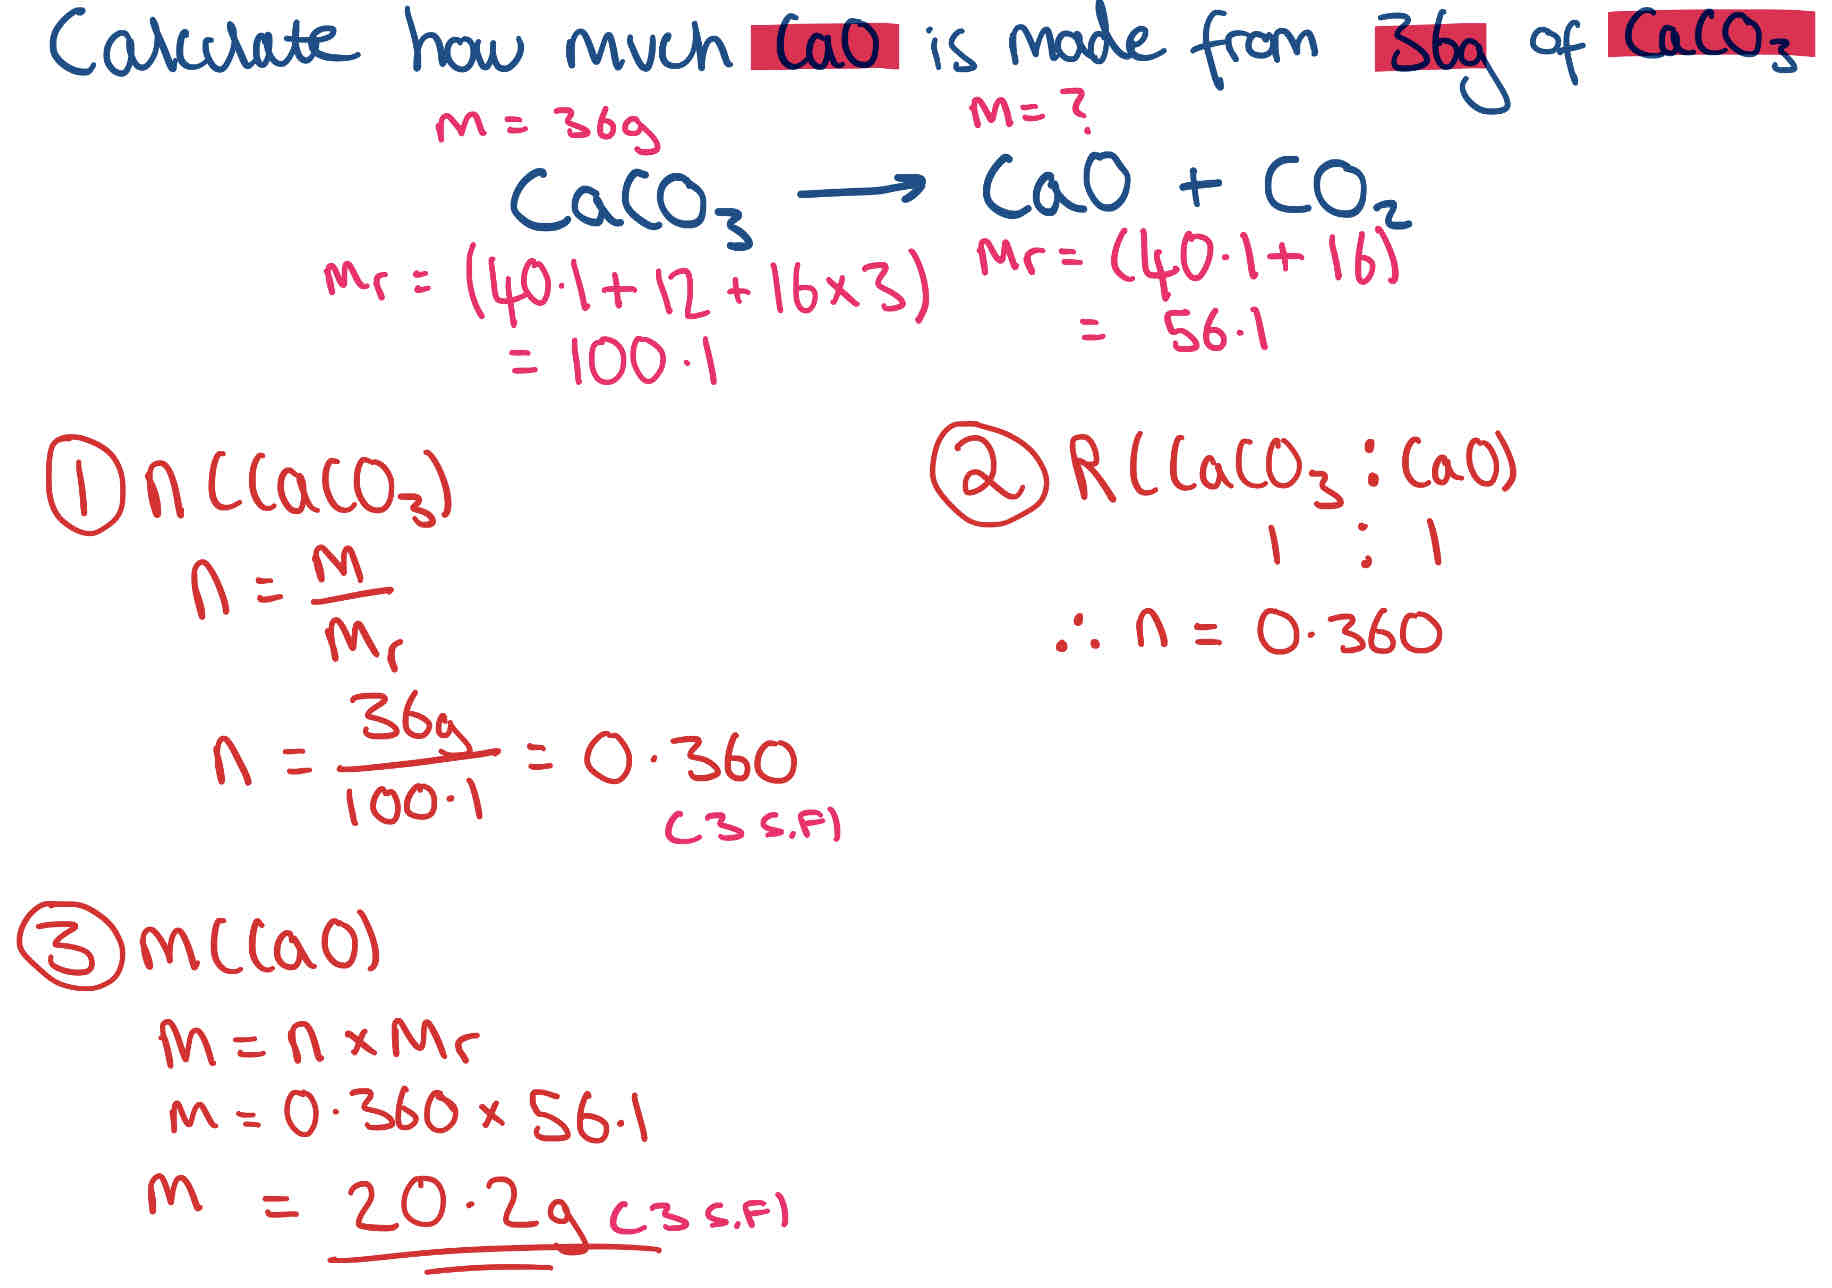 Calculate how much CaO is made from 36g of CaCO₃
m = 36g
m = ?
CaCO₃ → CaO + CO₂
Mr = (40.1 + 12 + 16 x 3)
= 100.1
Mr = (40.1 + 16)
= 56.1
① n(CaCO₃)
n = m / Mr
n = 36g / 100.1 = 0.360
(3 S.F)
② R(CaCO₃ : CaO)
1 : 1
∴ n = 0.360
③ m(CaO)
m = n x Mr
m = 0.360 x 56.1
m = 20.2g (3 S.F)